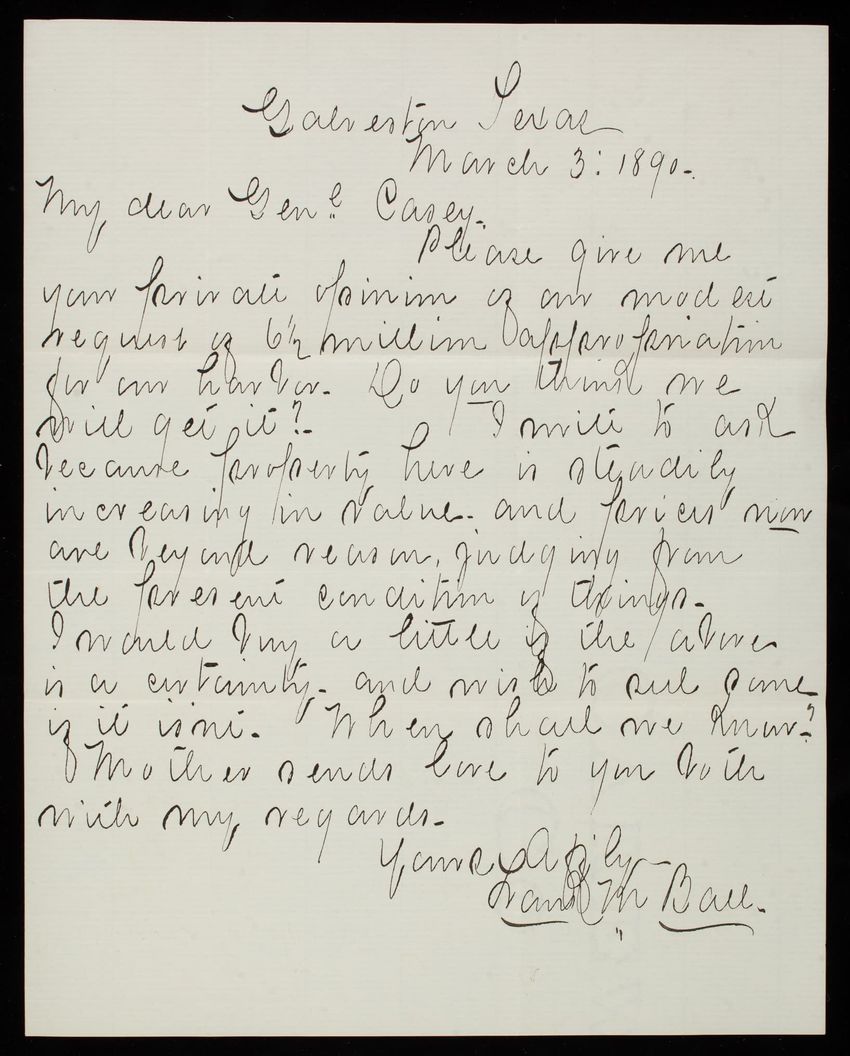 Galveston Texas
March 3: 1890.
My dear Genl Casey.
Please give me
your private opinion of our modest
request of 6½ million appropriation
for our harbor. Do you think we
will get it? I write to ask
because property here is steadily
increasing in value. and prices now
are beyond reason, judging from
the present condition of things.
I would buy a little if the above
is a certainty. and wish to sell some
if it isnt. When shall we know?
Mother sends love to you both
with my regards.
Yours
Frank M Ball.